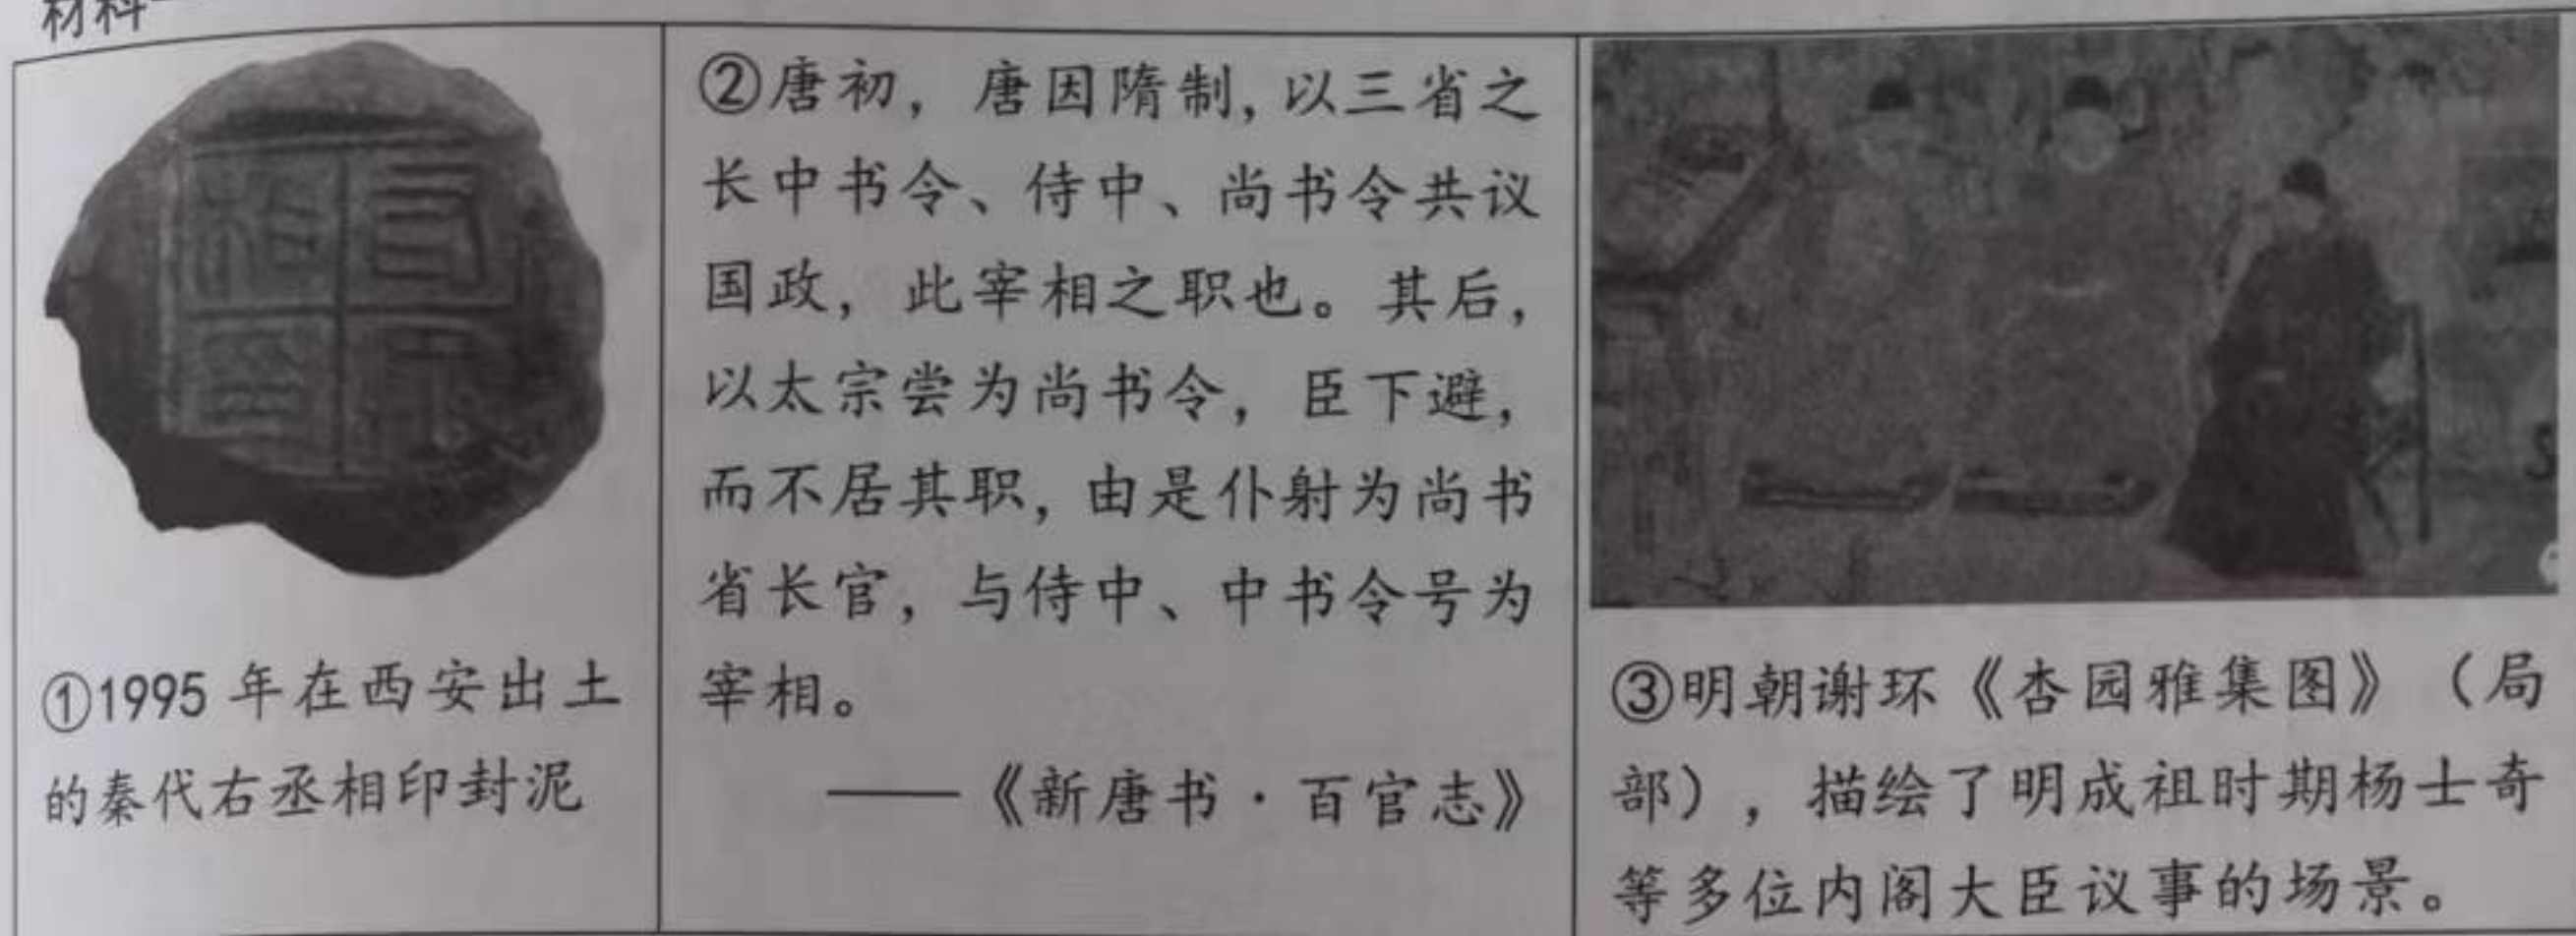 材料一
①1995年在西安出土
的秦代右丞相印封泥
②唐初，唐因隋制，以三省之
长中书令、侍中、尚书令共议
国政，此宰相之职也。其后，
以太宗尝为尚书令，臣下避，
而不居其职，由是仆射为尚书
省长官，与侍中、中书令号为
宰相。
——《新唐书·百官志》
③明朝谢环《杏园雅集图》（局
部），描绘了明成祖时期杨士奇
等多位内阁大臣议事的场景。